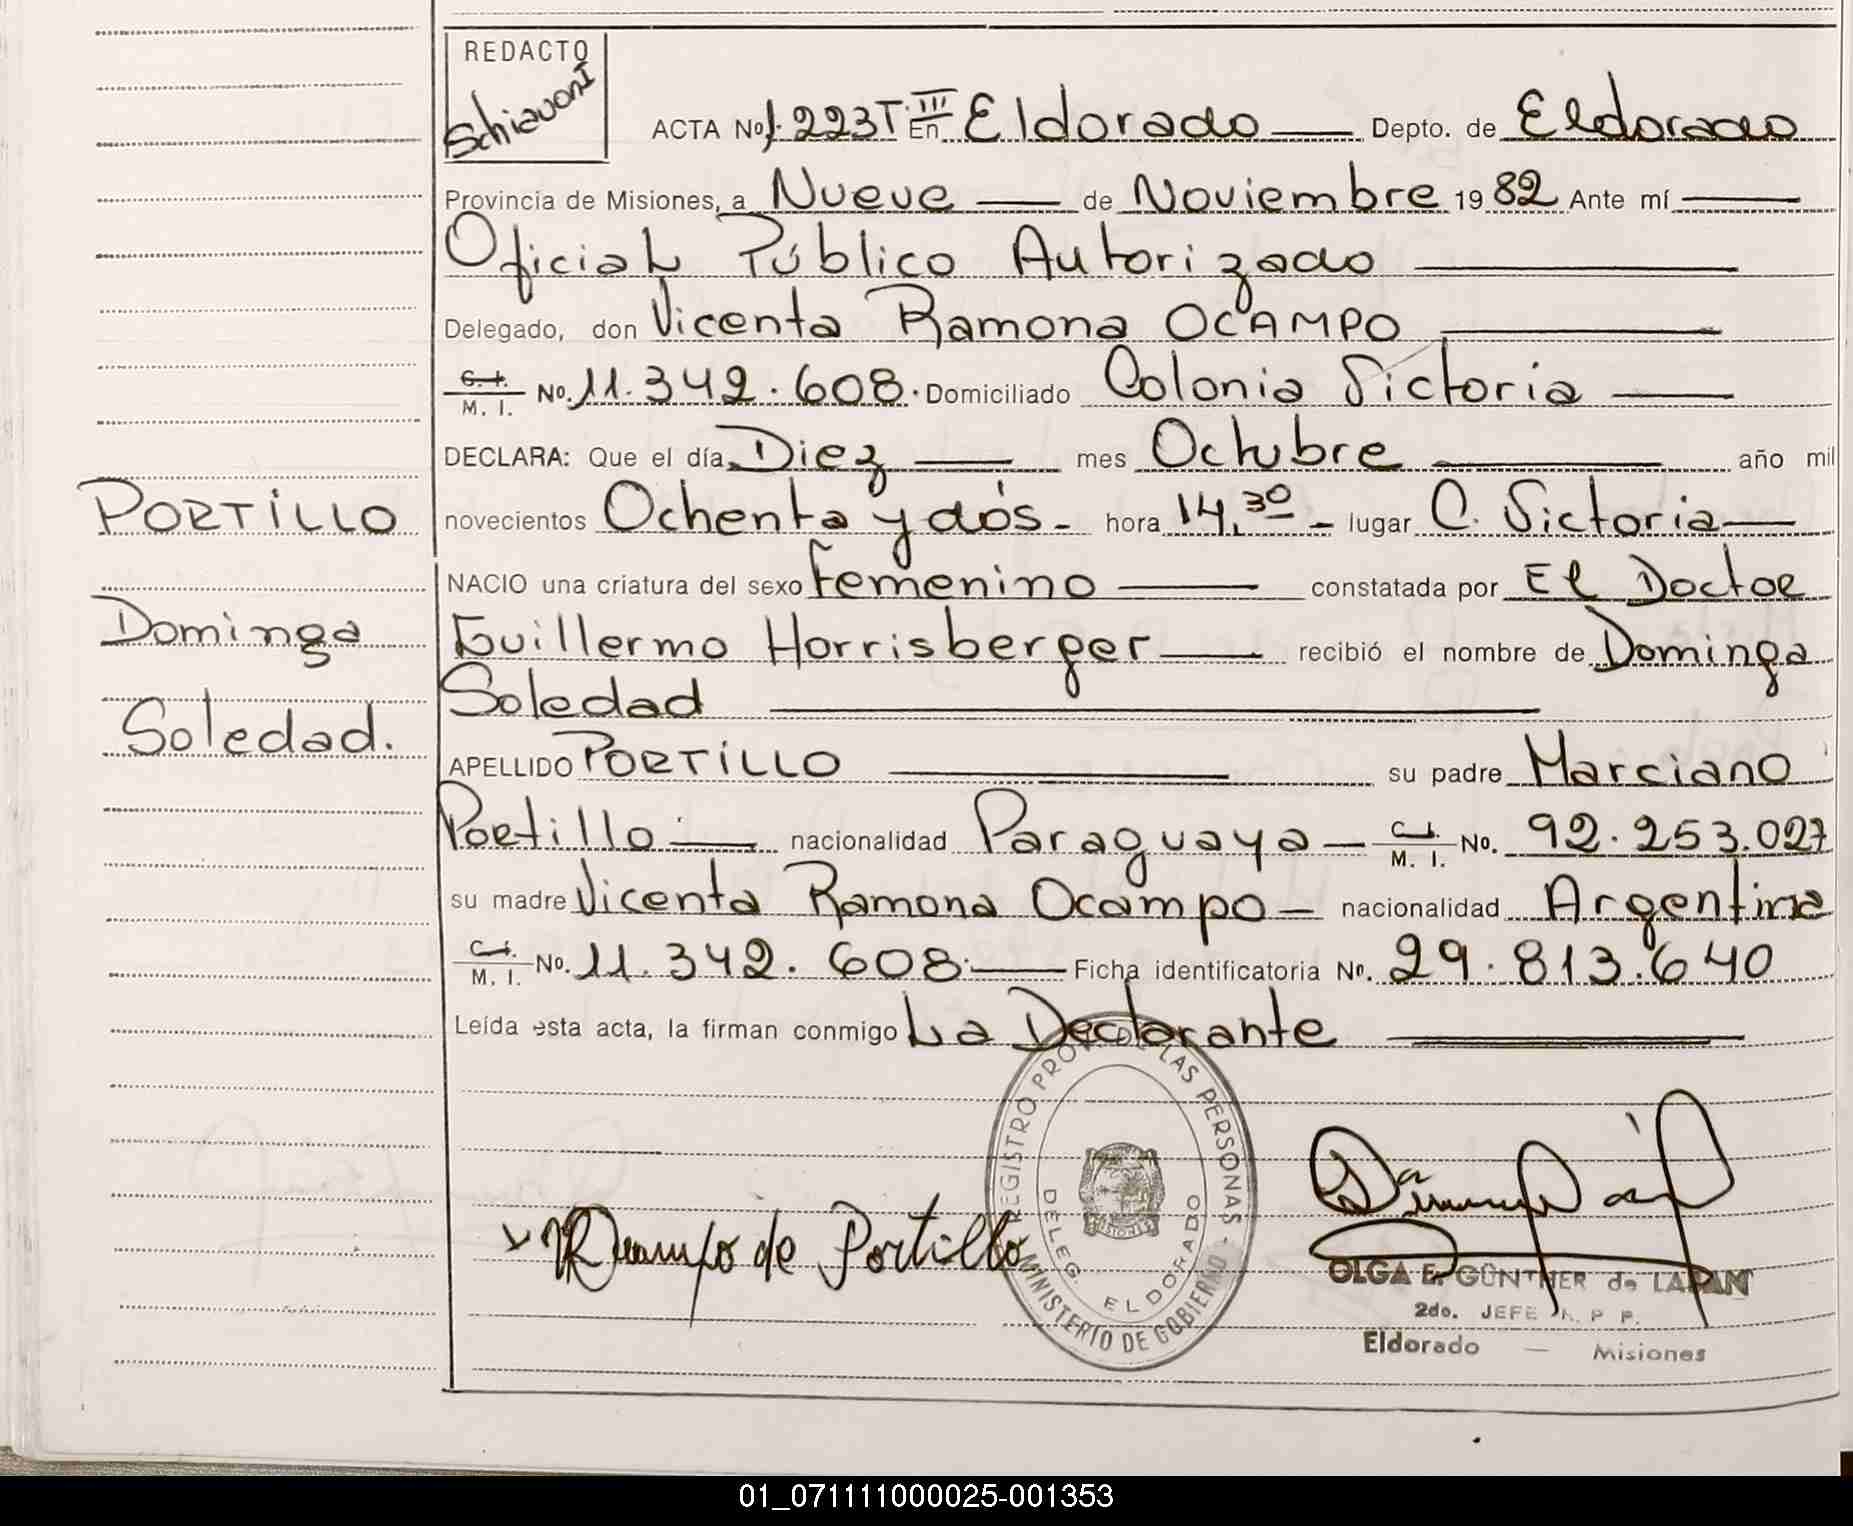 REDACTO
Schiavoni
ACTA No. 1.223 T. III En Eldorado Depto. de Eldorado
Provincia de Misiones, a Nueve de Noviembre 1982 Ante mí
Oficial Público Autorizado
Delegado, don Vicenta Ramona OCAMPO
C. I. M. I. No. 11.342.608. Domiciliado Colonia Victoria
DECLARA: Que el día Diez mes Octubre año mil
novecientos Ochenta y dós - hora 14,30 - lugar C. Victoria
NACIO una criatura del sexo Femenino constatada por El Doctor
Guillermo Horrisberger recibió el nombre de Dominga
Soledad
APELLIDO PORTILLO su padre Marciano
Portillo nacionalidad Paraguaya C. I. M. I. No. 92.253.027
su madre Vicenta Ramona Ocampo nacionalidad Argentina
C. I. M. I. No. 11.342.608 Ficha identificatoria No. 29.813.640
Leída esta acta, la firman conmigo La Declarante
PORTILLO
Dominga
Soledad.
REGISTRO PROV. DE LAS PERSONAS
MINISTERIO DE GOBIERNO
DELEG. ELDORADO
VROcampo de Portillo
OLGA E. GÜNTHER de
2do. JEFE R. P. P.
Eldorado — Misiones
01_071111000025-001353